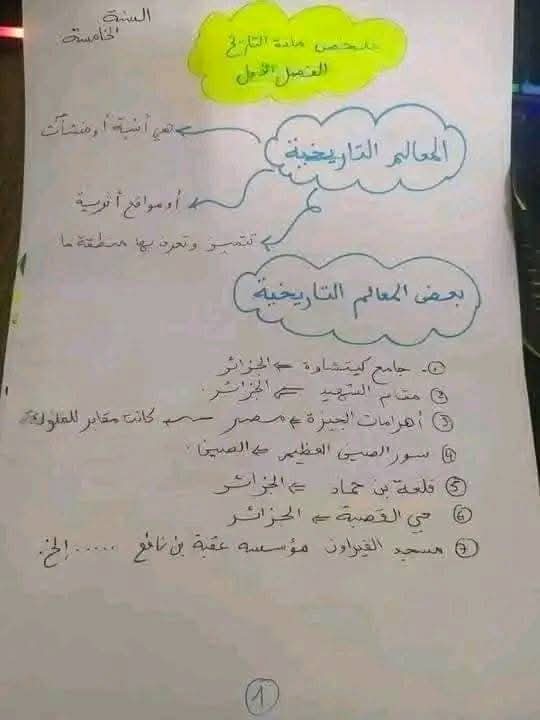 السنة
الخامسة
ملخص مادة التاريخ
الفصل الأول
المعالم التاريخية
هي أبنية أو منشآت
أو مواقع أثرية
تتميز وتعرف بها منطقة ما
بعض المعالم التاريخية
①- جامع كيتشاوة ⇐ الجزائر
② مقام الشهيد ⇐ الجزائر.
③ أهرامات الجيزة ⇐ مصر ← كانت مقابر للملوك
④ سور الصين العظيم ⇐ الصين.
⑤ قلعة بن حماد ⇐ الجزائر
⑥ حي القصبة ⇐ الجزائر
⑦ مسجد القيراون مؤسسه عقبة بن نافع ..... إلخ.
1